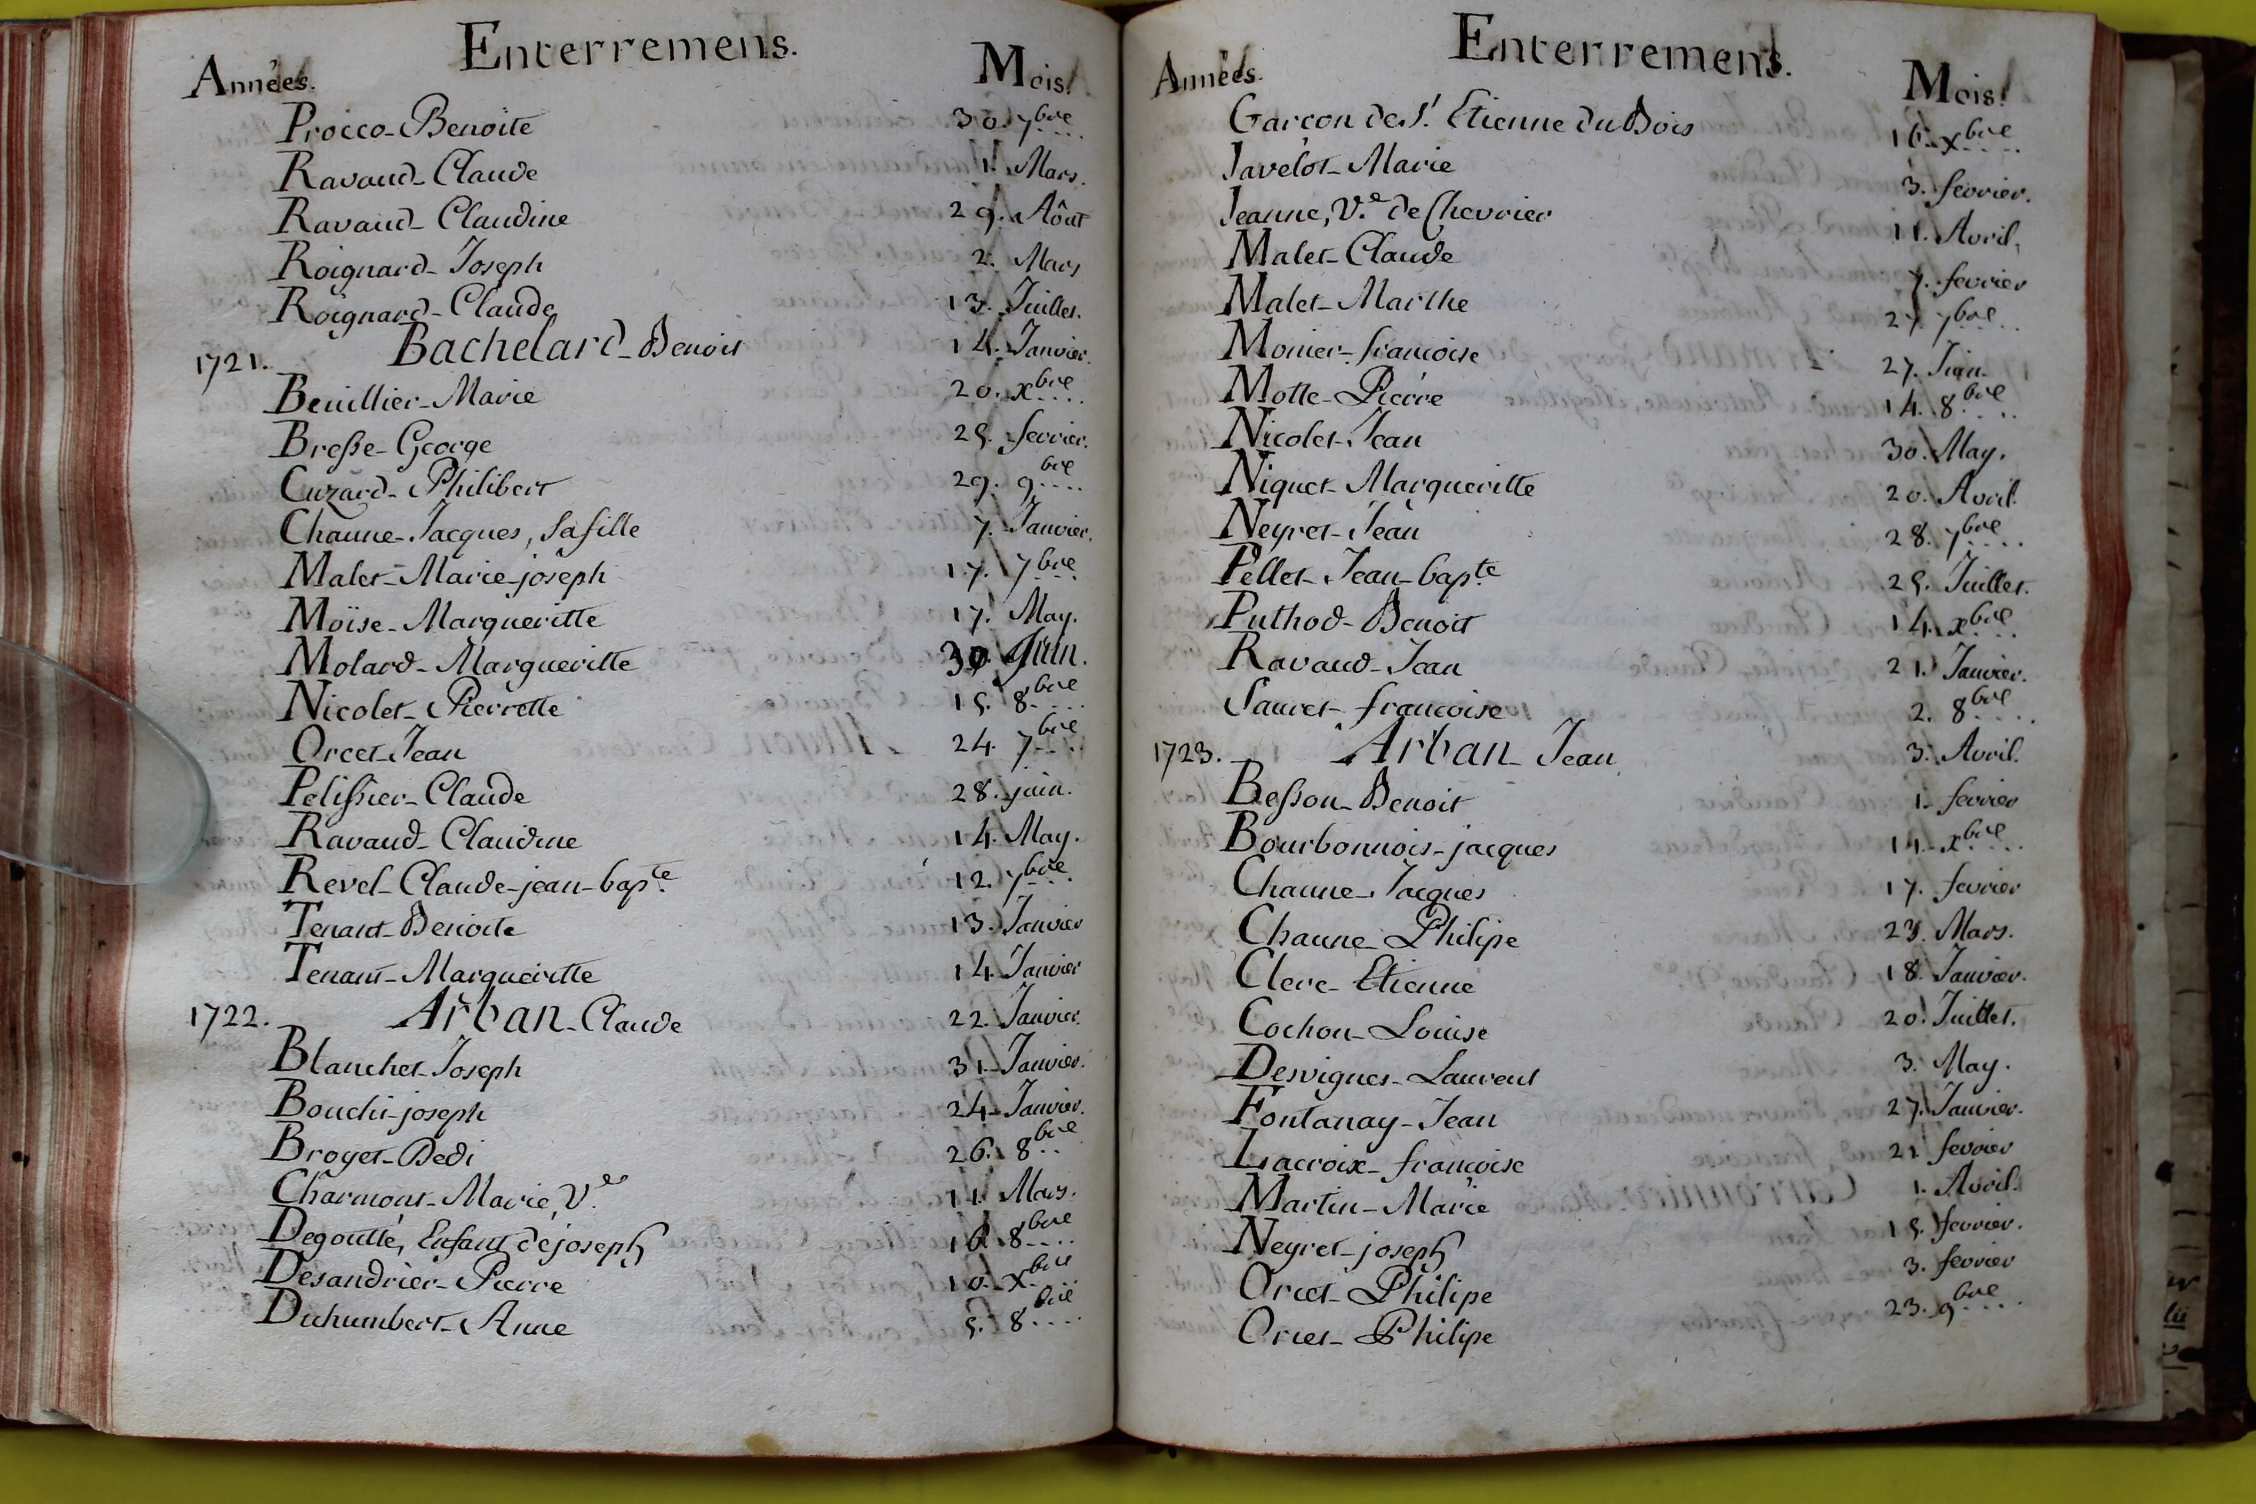 Enterremens.
Années. Mois.
Procco-Benoite 30. 7bre
Ravaud-Claude 1. Mars.
Ravaud-Claudine 29. Aôut
Roignard-Joseph 2. Mars
Roignard-Claude 13. Juillet.
1721. Bachelard-Benoit 14. Janvier.
Beuillier-Marie 20. xbre
Bresse-George 25. fevrier.
Cuzard-Philibert 29. 9bre
Chaune-Jacques, sa fille 7. Janvier.
Malet-Marie-joseph 17. 7bre
Moïse-Margueritte 17. May.
Molard-Margueritte 30. Juin.
Nicolet-Pierrette 15. 8bre
Orcet-Jean 24. 7bre
Pelissier-Claude 28. juin.
Ravaud-Claudine 14. May.
Revel-Claude-jean-bapte. 12. 7bre
Tenant-Benoite 13. Janvier
Tenant-Margueritte 14. Janvier
1722. Arban-Claude 22. Janvier.
Blanchet-Joseph 31. Janvier.
Bouchi-joseph 24. Janvier.
Broyet-Dedi 26. 8bre
Charmont-Marie, Ve. 11. Mars.
Degoutté, Enfant de joseph 16. 8bre
Desandrier-Pierre 10. xbre
Duhumbert-Anne 5. 8bre
Enterremens.
Années. Mois.
Garçon de St. Etienne du Bois 16. xbre
Javelot-Marie 3. fevrier.
Jeanne, Ve. de Chevrier 11. Avril.
Malet-Claude 7. fevrier
Malet-Marthe 27. 7bre
Monier-francoise 27. Juin.
Motte-Pierre 14. 8bre
Nicolet-Jean 30. May.
Niquet-Margueritte 20. Avril.
Neyret-Jean 28. 7bre
Pellet-Jean-bapte 25. Juillet.
Puthod-Benoit 14. xbre
Ravaud-Jean 21. Janvier.
Sauret-francoise 2. 8bre
1723. Arban-Jean 3. Avril.
Besson-Benoit 1. fevrier
Bourbonnois-jacques 14. xbre
Chaune-Jacques 17. fevrier
Chaune-Philipe 23. Mars.
Clerc-Etienne 18. Janvier.
Cochon-Louise 20. Juillet.
Desvignes-Laurent 3. May.
Fontanay-Jean 27. Janvier.
Lacroix-francoise 21 fevrier
Martin-Marie 1. Avril.
Neyret-joseph 15. fevrier.
Orcet-Philipe 3. fevrier
Orcet-Philipe 23. 9bre